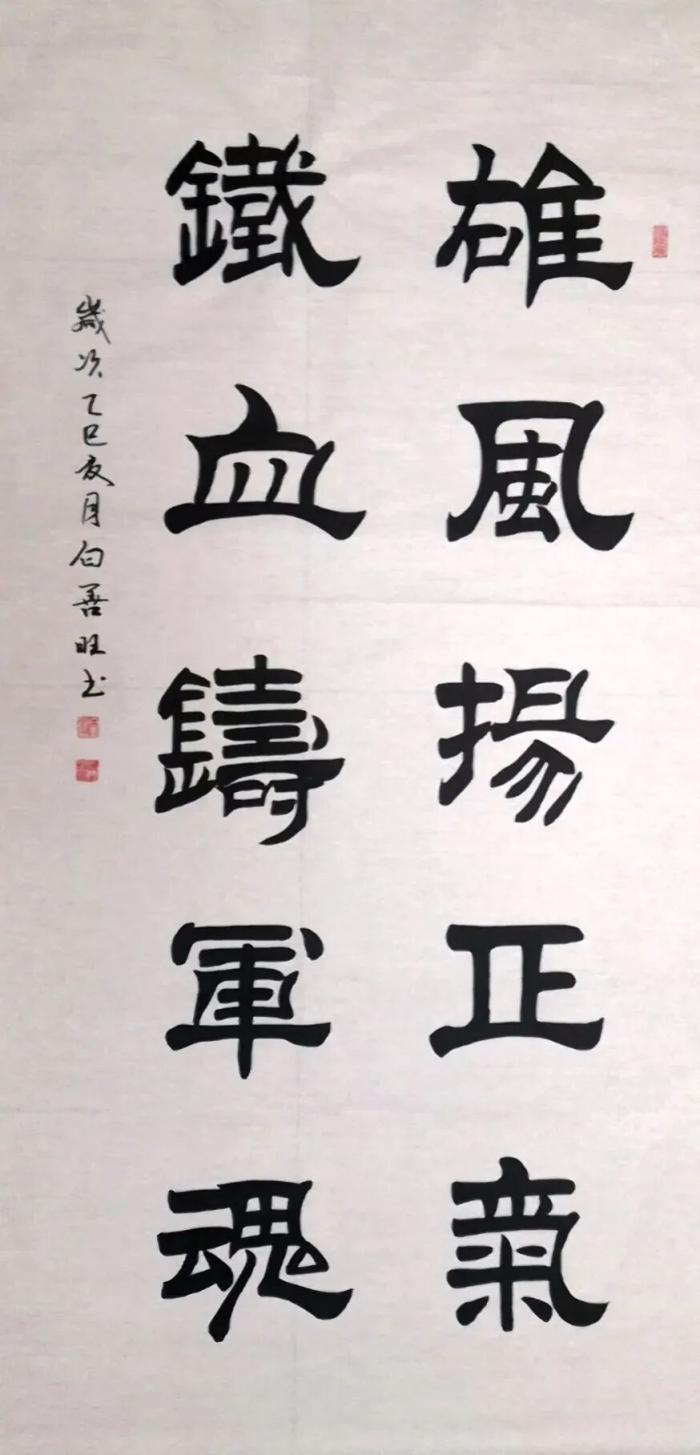 雄風揚正氣
鐵血鑄軍魂
歲次乙巳夏月白善旺书